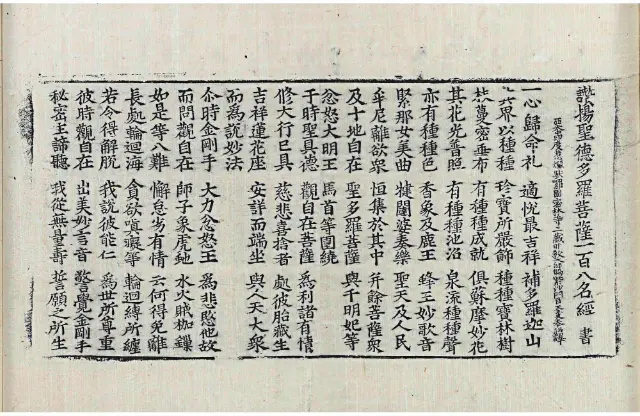 讃揚聖德多羅菩薩一百八名經 書
一心歸命礼 適悅最吉祥 補多羅迦山
界以種種 珍寶所嚴飾 種種寶林樹
蔓密垂布 有種種成就 俱蘇摩妙花
其花光普照 有種種池沼 泉流種種聲
亦有種種色 香象及鹿王 蜂王妙歌音
緊那女美曲 犍闥婆奏樂 聖天及人民
牟尼離欲衆 恒集於其中 并餘菩薩衆
及十地自在 聖多羅菩薩 與千明妃等
忿怒大明王 馬首等圍繞
于時聖具德 觀自在菩薩 爲利諸有情
修大行已具 慈悲喜捨者 處彼胎藏生
吉祥蓮花座 安詳而端坐 與人天大衆
而爲說妙法
尒時金剛手 大力忿怒王 爲悲愍他故
而問觀自在 師子象虎虵 水火賊枷鏁
如是等八難 懈怠劣有情 云何得免離
長處輪迴海 貪欲嗔癡等 輪迴縛所纏
若令得解脫 我說彼能仁 爲世所尊重
彼時觀自在 出美妙言音 警覺金剛手
秘密主諦聽 我從無量壽 誓願之所生